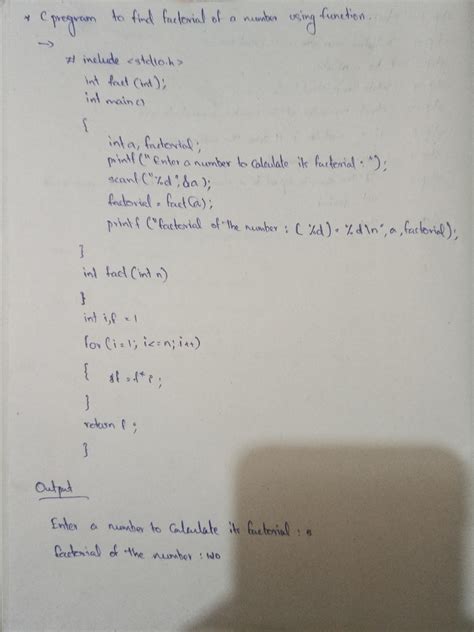 * C pregram to find factorial of a number using function.
→
# include <stdio.h>
int fact (int);
int main()
{
int a, factorial;
printf ("Enter a number to calculate its factorial : ");
scanf ("%d", &a);
factorial = fact(a);
printf ("factorial of the number : (%d) = %d\n", a, factorial);
}
int fact (int n)
}
int i,f = 1
for (i=1; i<=n; i++)
{
f = f* i ;
}
return f ;
}
Output
Enter a number to calculate its factorial : 5
factorial of the number :